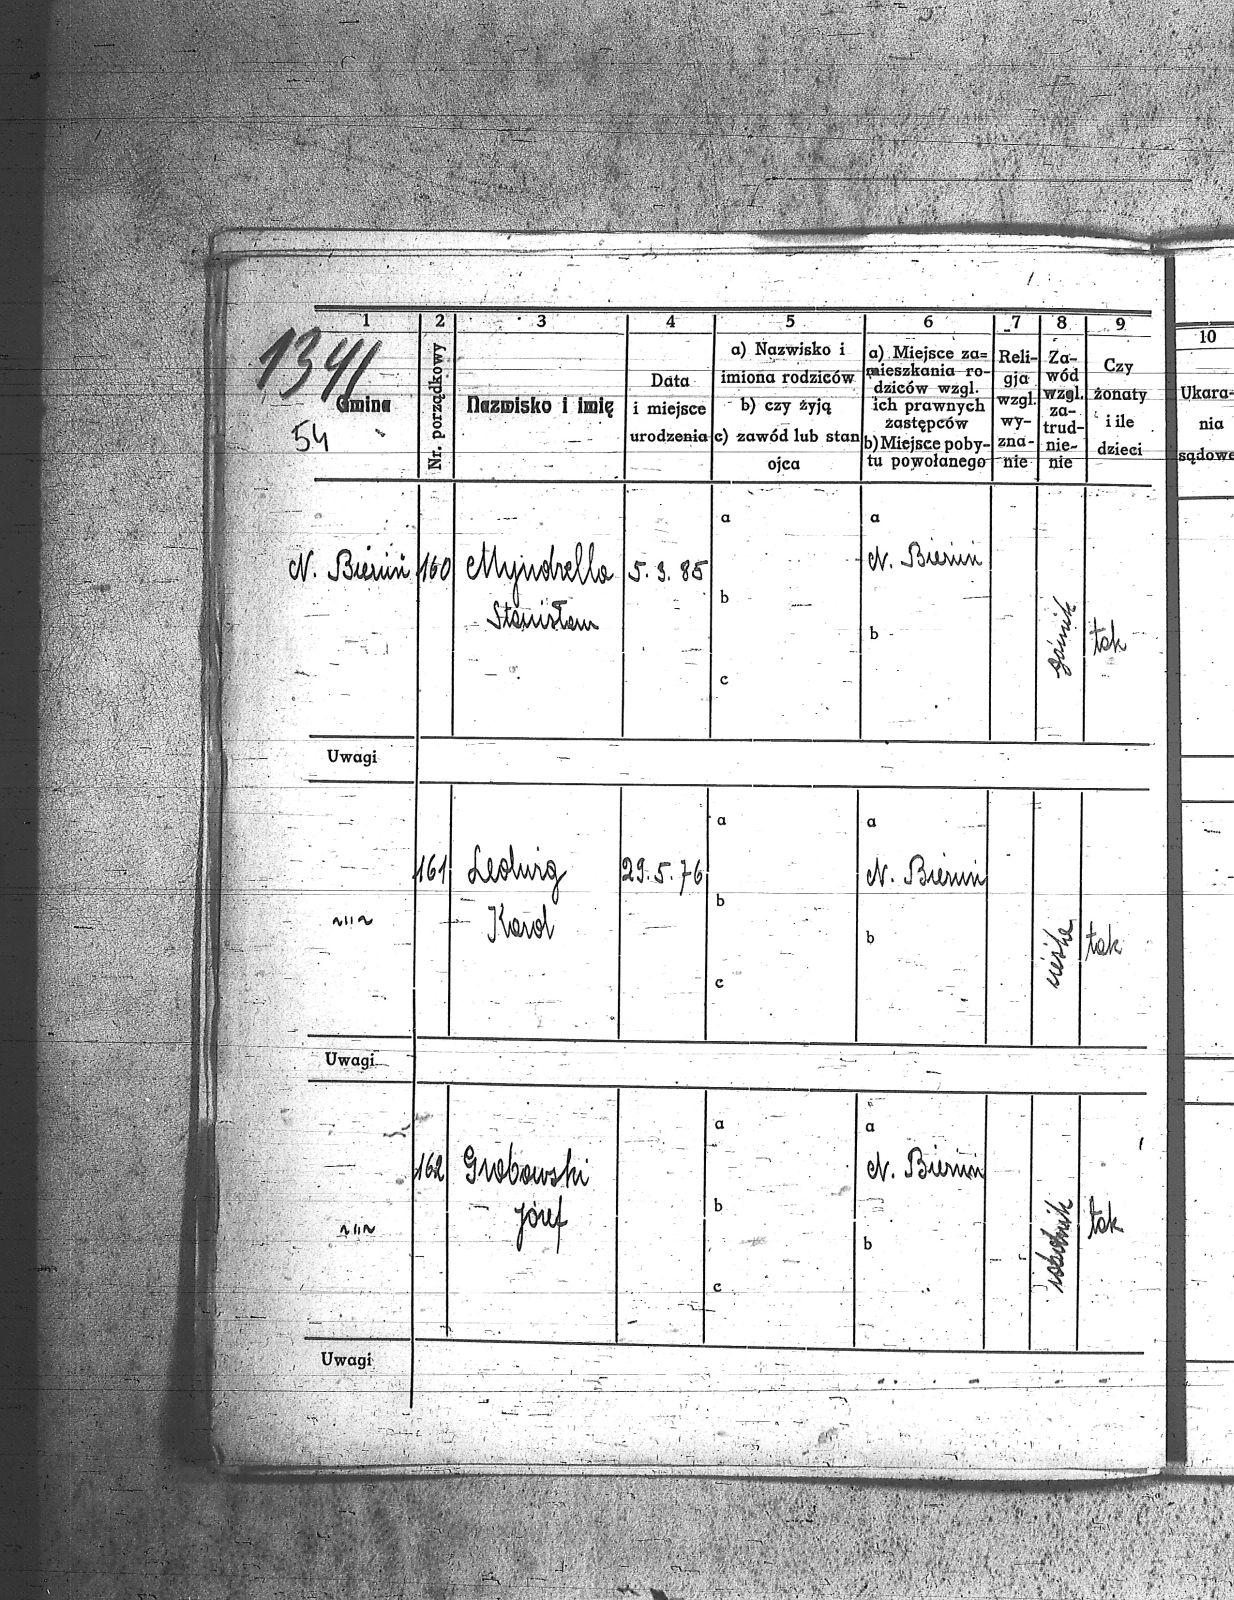 1341
54
1
2
3
4
5
6
7
8
9
10
Gmina
Nr. porządkowy
Nazwisko i imię
Data
i miejsce
urodzenia
a) Nazwisko i
imiona rodziców
b) czy żyją
c) zawód lub stan
ojca
a) Miejsce za=
mieszkania ro-
dziców wzgl.
ich prawnych
zastępców
b) Miejsce poby-
tu powołanego
Reli-
gja
wzgl.
wy-
zna-
nie
Za-
wód
wzgl.
za-
trud-
nie-
nie
Czy
żonaty
i ile
dzieci
Ukara-
nia
sądowe
N. Bieruń
160
Myndrella
Stanisław
5. 3. 85
a
b
c
a
N. Bieruń
b
górnik
tak
Uwagi
~"~
161
Ledwig
Karol
29. 5. 76
a
b
c
a
N. Bieruń
b
cieśla
tak
Uwagi
~"~
162
Grabowski
Józef
a
b
c
a
N. Bieruń
b
robotnik
tak
Uwagi